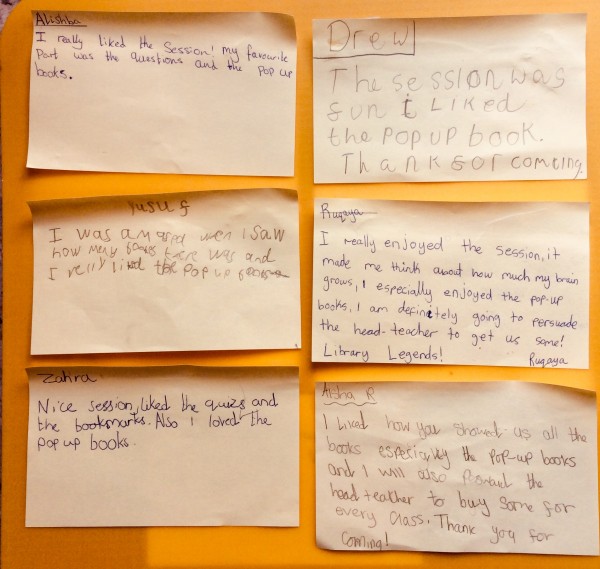 Alishba
I really liked the Session! my favourite
Part was the questions and the Pop up
books.
Drew
The session was
fun i LIKed
the pop up book.
Thank for coming.
Yusuf
I was amased wen i saw
how meny books there was and
I really liked the Pop up
Ruqaya
I really enjoyed the session, it
made me think about how much my brain
grows, I especially enjoyed the pop-up
books, I am definitely going to persuade
the head-teacher to get us some!
Library Legends! Ruqaya
Zahra
Nice session, liked the quizs and
the bookmarks. Also I loved the
pop up books.
Aisha R
I liked how you showed us all the
books especially the pop-up books
and I will also the
head teacher to buy some for
every class. Thank you for
coming!